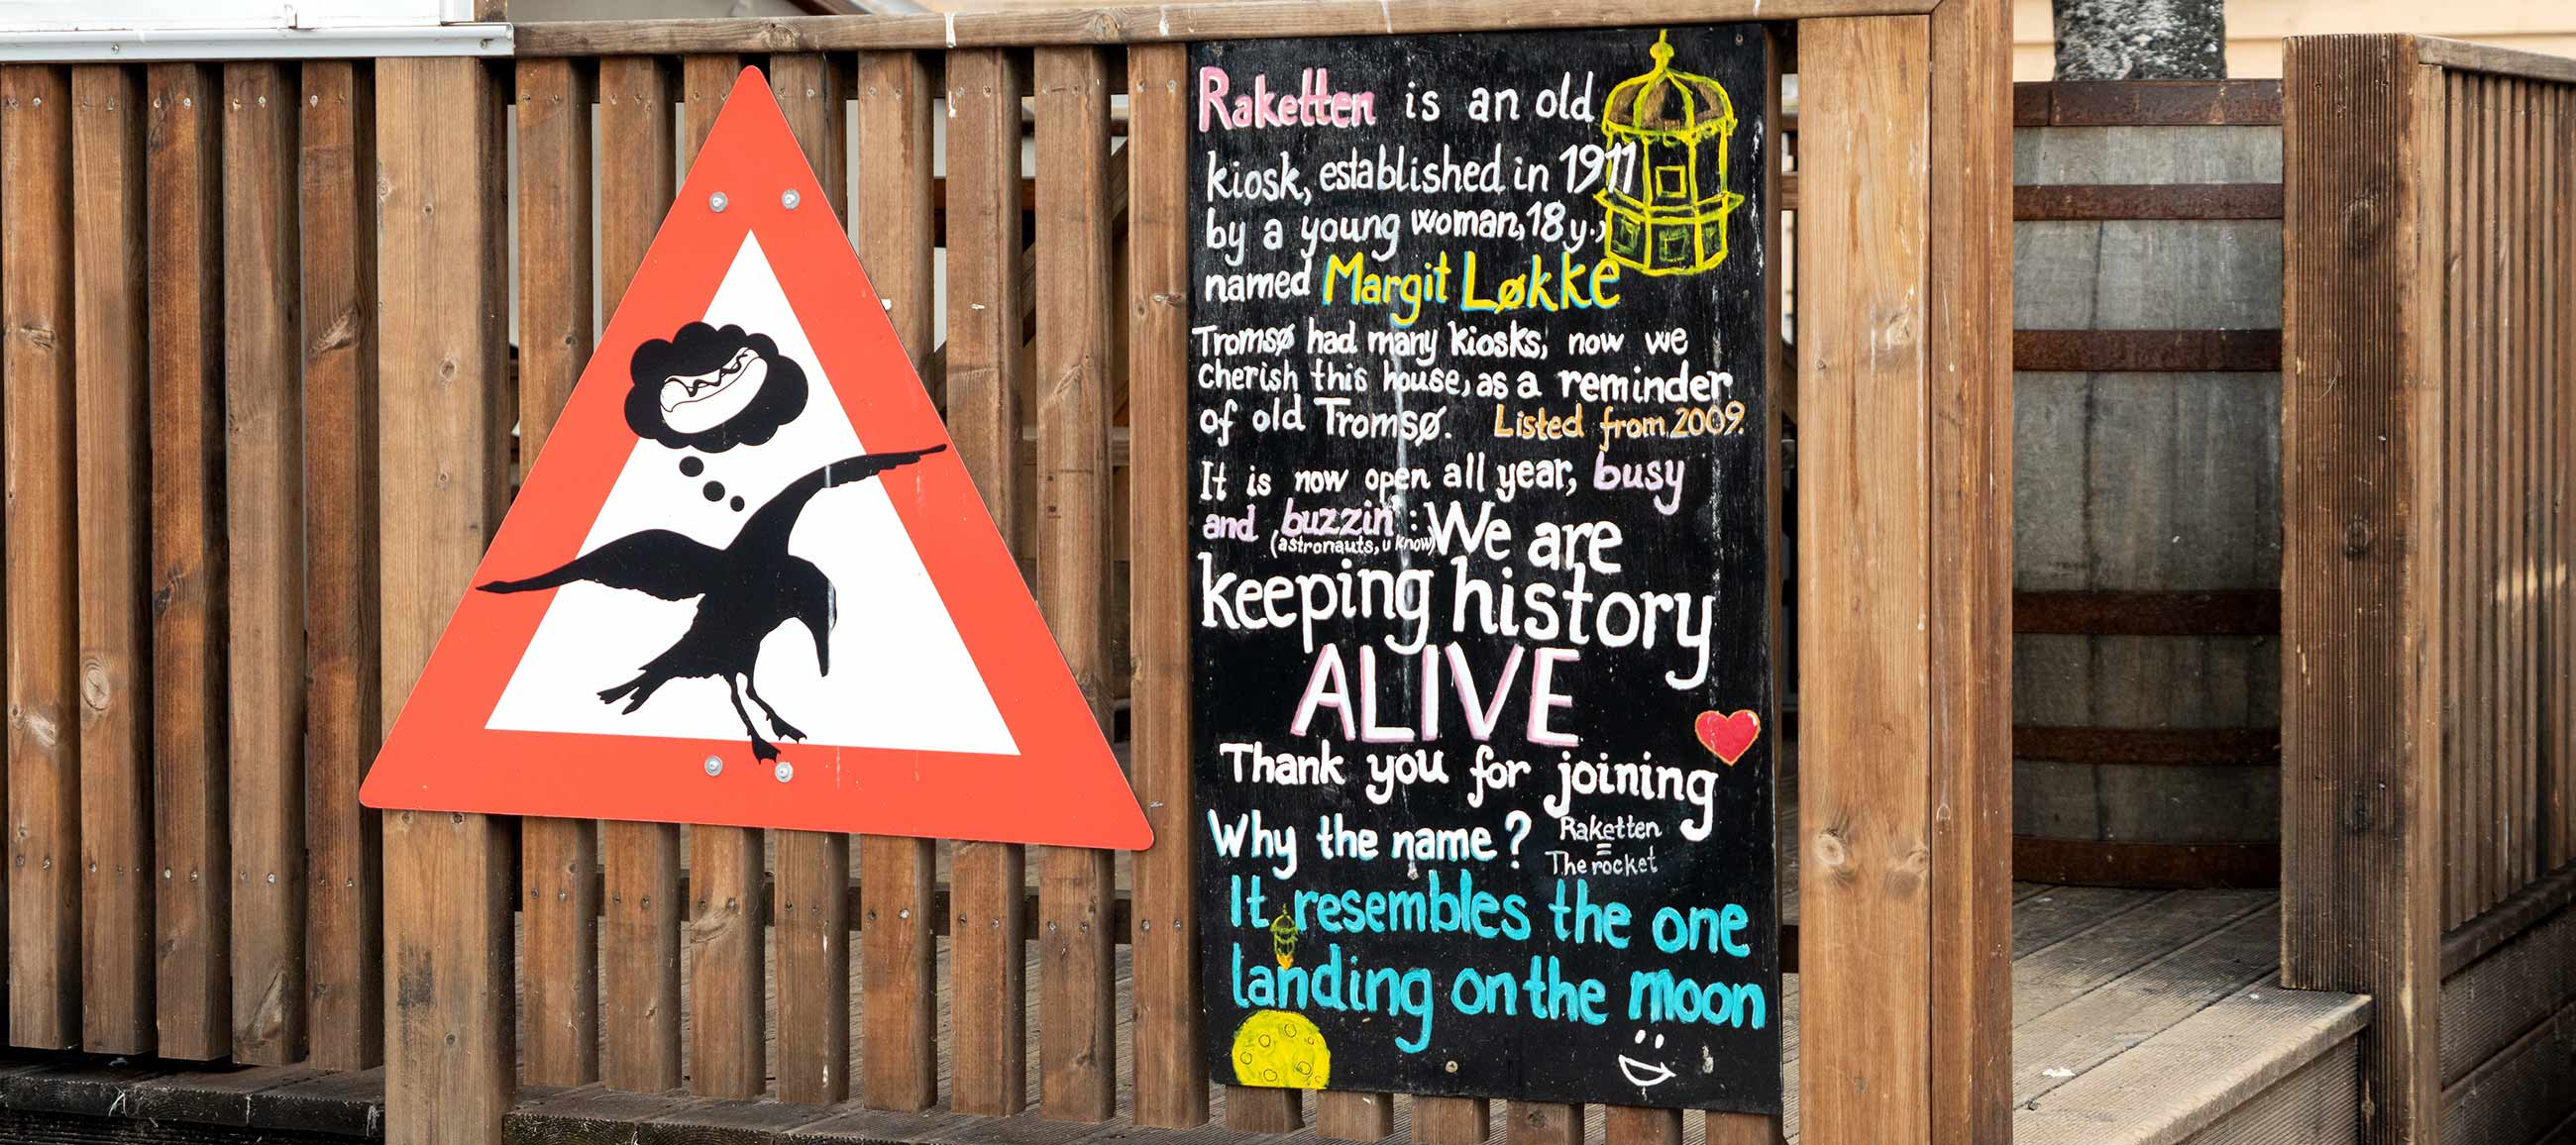 Raketten is an old
kiosk, established in 1911
by a young woman, 18 y.,
named Margit Løkke
Tromsø had many kiosks, now we
cherish this house, as a reminder
of old Tromsø. Listed from 2009.
It is now open all year, busy
and buzzin': We are
(astronauts, u know)
keeping history
ALIVE
Thank you for joining
Why the name? Raketten
=
The rocket
It resembles the one
landing on the moon